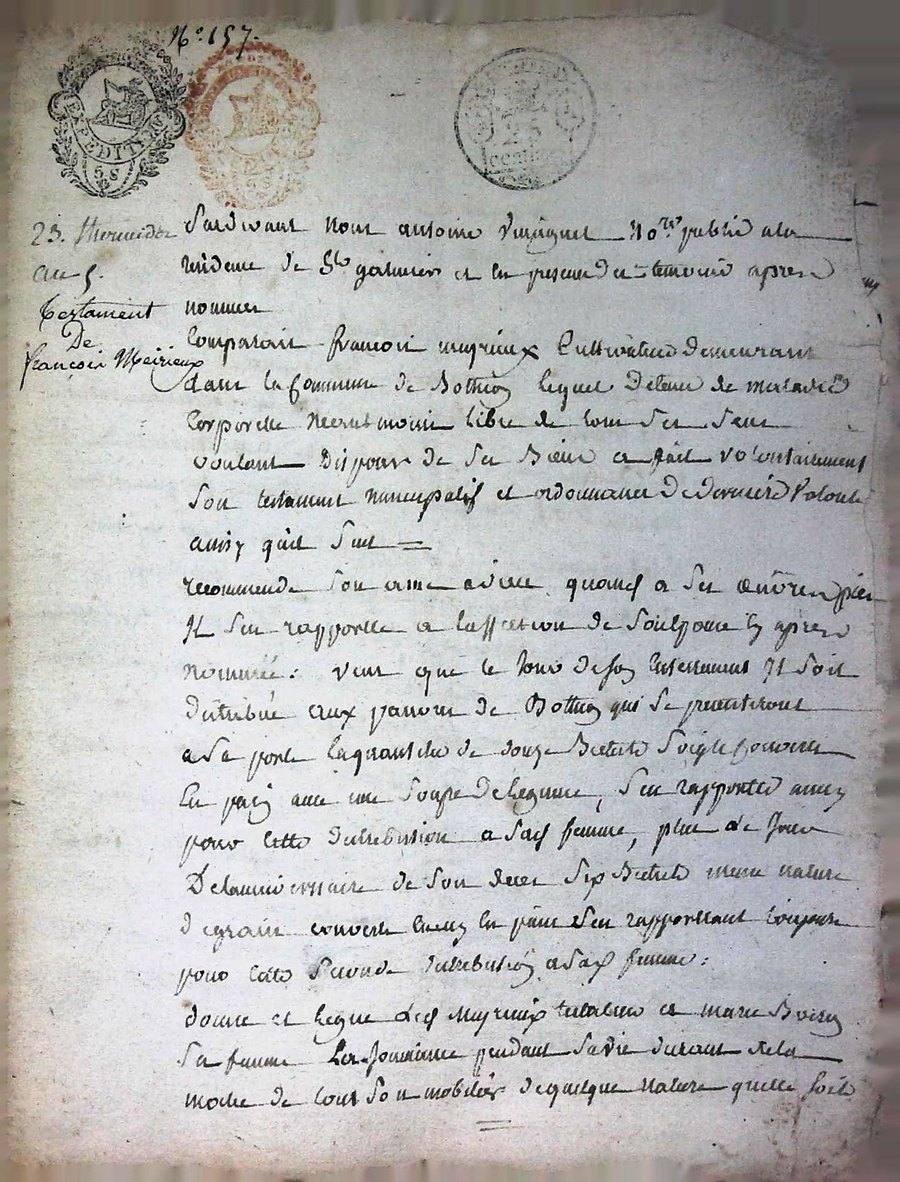 N.º 157.
EXPEDITION
58
25
centimes
23. thermidor
an 5.
Testament
De
françois Meirieux
Pardevant Nous antoine No.re public ala
residence de St galmier et en presence des temoins apres
nommes
Comparait françois meyrieux Cultivateur Demeurant
dans la Commune de Botheon lequel detenu de maladie
Corporelle Neantmoins libre de tous Ses Sens
voulant Disposer de Ses Biens a fait volontairement
Son testament nuncupatif et ordonnance De derniere Volonté
ainsy qu'il Suit =
recommende Son ame a dieu, quand a Ses œuvres pies
Il S'en rapporte a laffection de Son epouse cy apres
nommée: veut que le Jour de son Enterrement Il Soit
distribué aux pauvres de Botheon qui Se presenteront
a Sa porte la quantité de douze Bichets Soigle Convertis
En pain avec une Soupe de legume, S'en rapporte aussy
pour Cette distribution a Sad femme, plus le Jour
De lanniversaire de Son deces Six Bichets meme nature
de grain convertis aussy En pain S'en rapportant toujours
pour Cette Seconde distribution a Sad femme:
donne et legue led Meyrieux testateur a marie
Sa femme La Jouissance pendant Sa vie durant de la
moitié de tout Son mobilier de quelque Nature quelle Soit